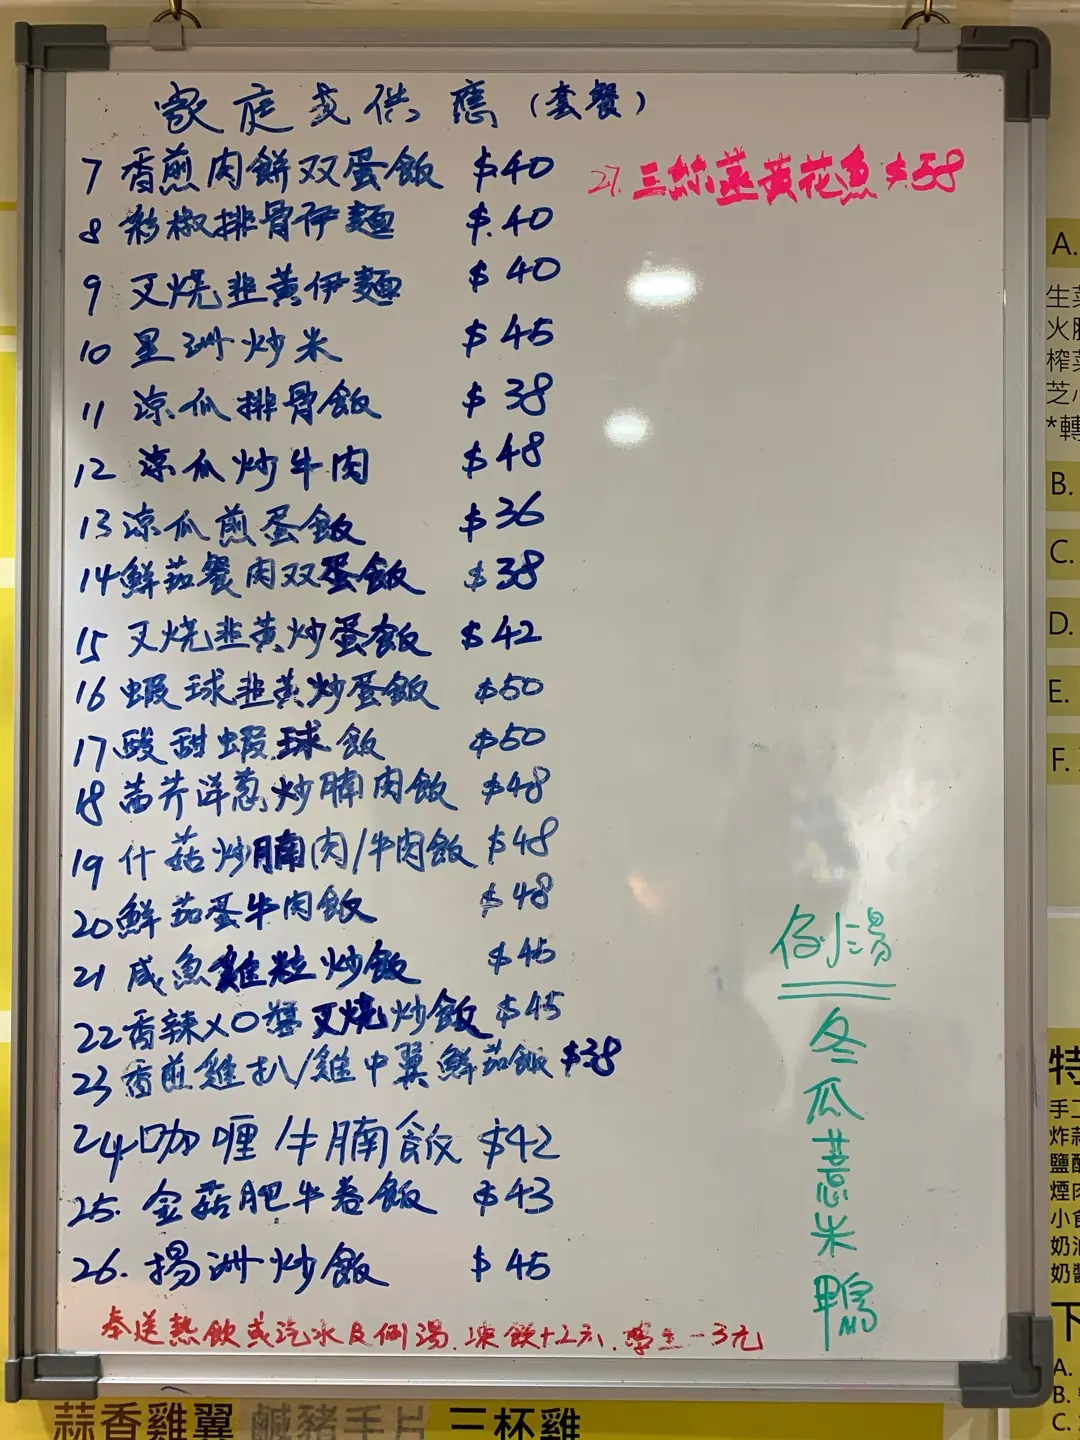 家庭式供應（套餐）
7 香煎肉餅双蛋飯 $40
8 彩椒排骨伊麵 $40
9 叉燒韭黃伊麵 $40
10 星洲炒米 $45
11 涼瓜排骨飯 $38
12 涼瓜炒牛肉 $48
13 涼瓜煎蛋飯 $36
14 鮮茄餐肉双蛋飯 $38
15 叉燒韭黃炒蛋飯 $42
16 蝦球韭黃炒蛋飯 $50
17 酸甜蝦球飯 $50
18 茜芹洋葱炒腩肉飯 $48
19 什菇炒腩肉/牛肉飯 $48
20 鮮茄蛋牛肉飯 $48
21 咸魚雞粒炒飯 $45
22 香辣XO醬叉燒炒飯 $45
23 香煎雞扒/雞中翼鮮茄飯 $38
24 咖喱牛腩飯 $42
25. 金菇肥牛卷飯 $43
26. 揚洲炒飯 $45
奉送熱飲或汽水及例湯.凍飲+2元.學生-3元
27. 三絲蒸黃花魚 $58
例湯
冬瓜薏米鴨
A.
生菜
榨菜
*轉
B.
C.
D.
E.
F.
特
手工
小食
奶油
奶醬
下
A.
B.
C.
蒜香雞翼 鹹豬手片 三杯雞